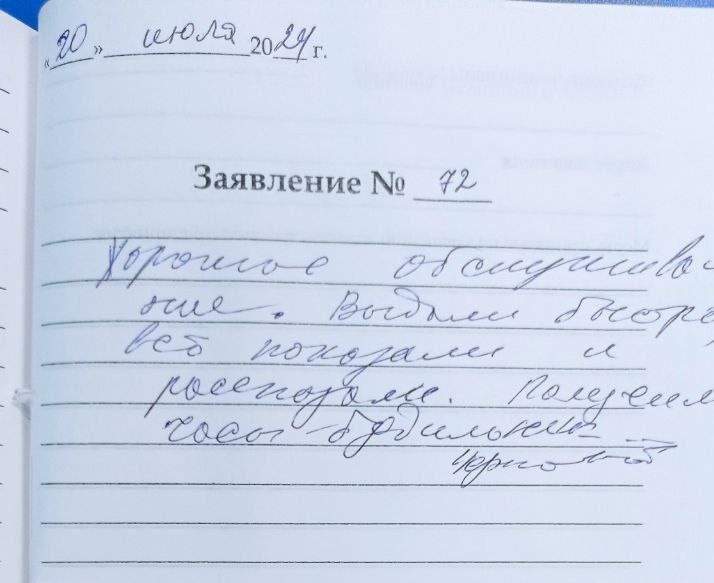 «20» июля 2024 г.
Заявление № 72
Хорошее обслужива-
ние. Выдали быстро,
всё показали и
рассказали. Получили
часы-будильник